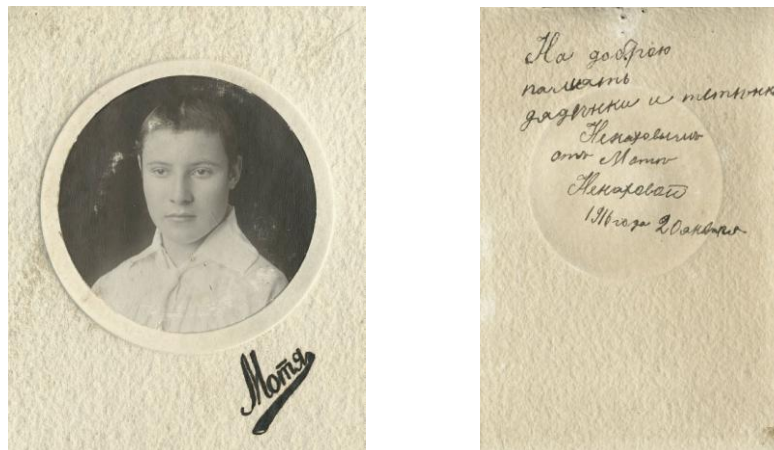 Мотя
На добрую
память
дядѣнки и тетѣньк
Ненаховымъ
отъ Моти
Ненаховой
1916 года 20 января